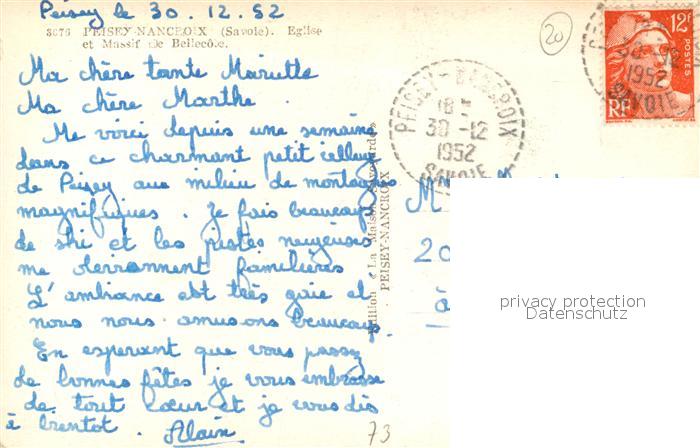 Peisey le 30.12.52
3676 PEISEY-NANCROIX (Savoie). Eglise
et Massif de Bellecôte.
Ma chère tante Mariette
Ma chère Marthe
Me voici depuis une semaine
dans ce charmant petit village
de Peisey au milieu de montagnes
magnifiques. Je fais beaucoup
de ski et les pistes neigeuses
me deviennent familières
L'ambiance est très gaie et
nous nous amusons beaucoup.
En esperant que vous passez
de bonnes fêtes je vous embrasse
de tout cœur et je vous dis
à bientot. Alain
73
Edition « La Maison Savoyarde »
PEISEY-NANCROIX
20
PEISEY-NANCROIX
18
30-12
1952
SAVOIE
12F
POSTES
RF
1952
SAVOIE
M
20
à
privacy protection
Datenschutz